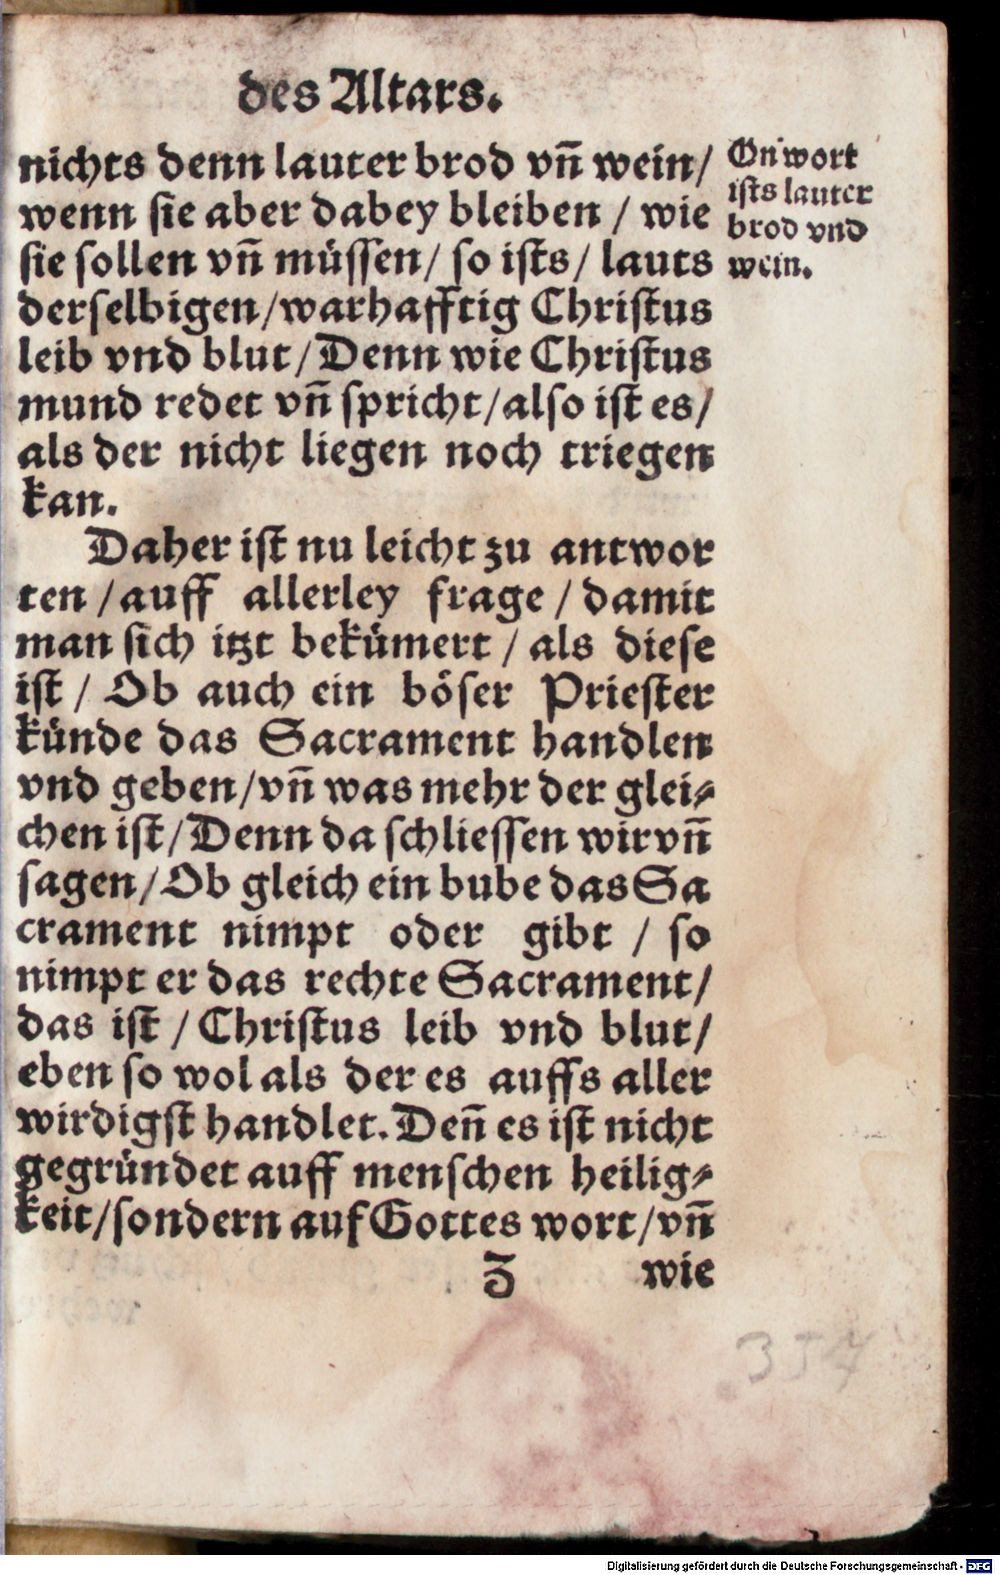 des Altars.
nichts denn lauter brod vñ wein/
wenn sie aber dabey bleiben / wie
sie sollen vñ müssen/ so ists/ lauts
derselbigen/warhafftig Christus
leib vnd blut/Denn wie Christus
mund redet vñ spricht/also ist es/
als der nicht liegen noch triegen
kan.
On wort
ists lauter
brod vnd
wein.
Daher ist nu leicht zu antwor
ten /auff allerley frage / damit
man sich itzt bekümert / als diese
ist / Ob auch ein böser Priester
künde das Sacrament handlen
vnd geben/vñ was mehr der glei-
chen ist/Denn da schliessen wir vñ
sagen/Ob gleich ein bube das Sa
crament nimpt oder gibt / so
nimpt er das rechte Sacrament/
das ist / Christus leib vnd blut/
eben so wol als der es auffs aller
wirdigst handlet. Deñ es ist nicht
gegründet auff menschen heilig-
keit/sondern auf Gottes wort/vñ
Z wie
354
Digitalisierung gefördert durch die Deutsche Forschungsgemeinschaft - DFG